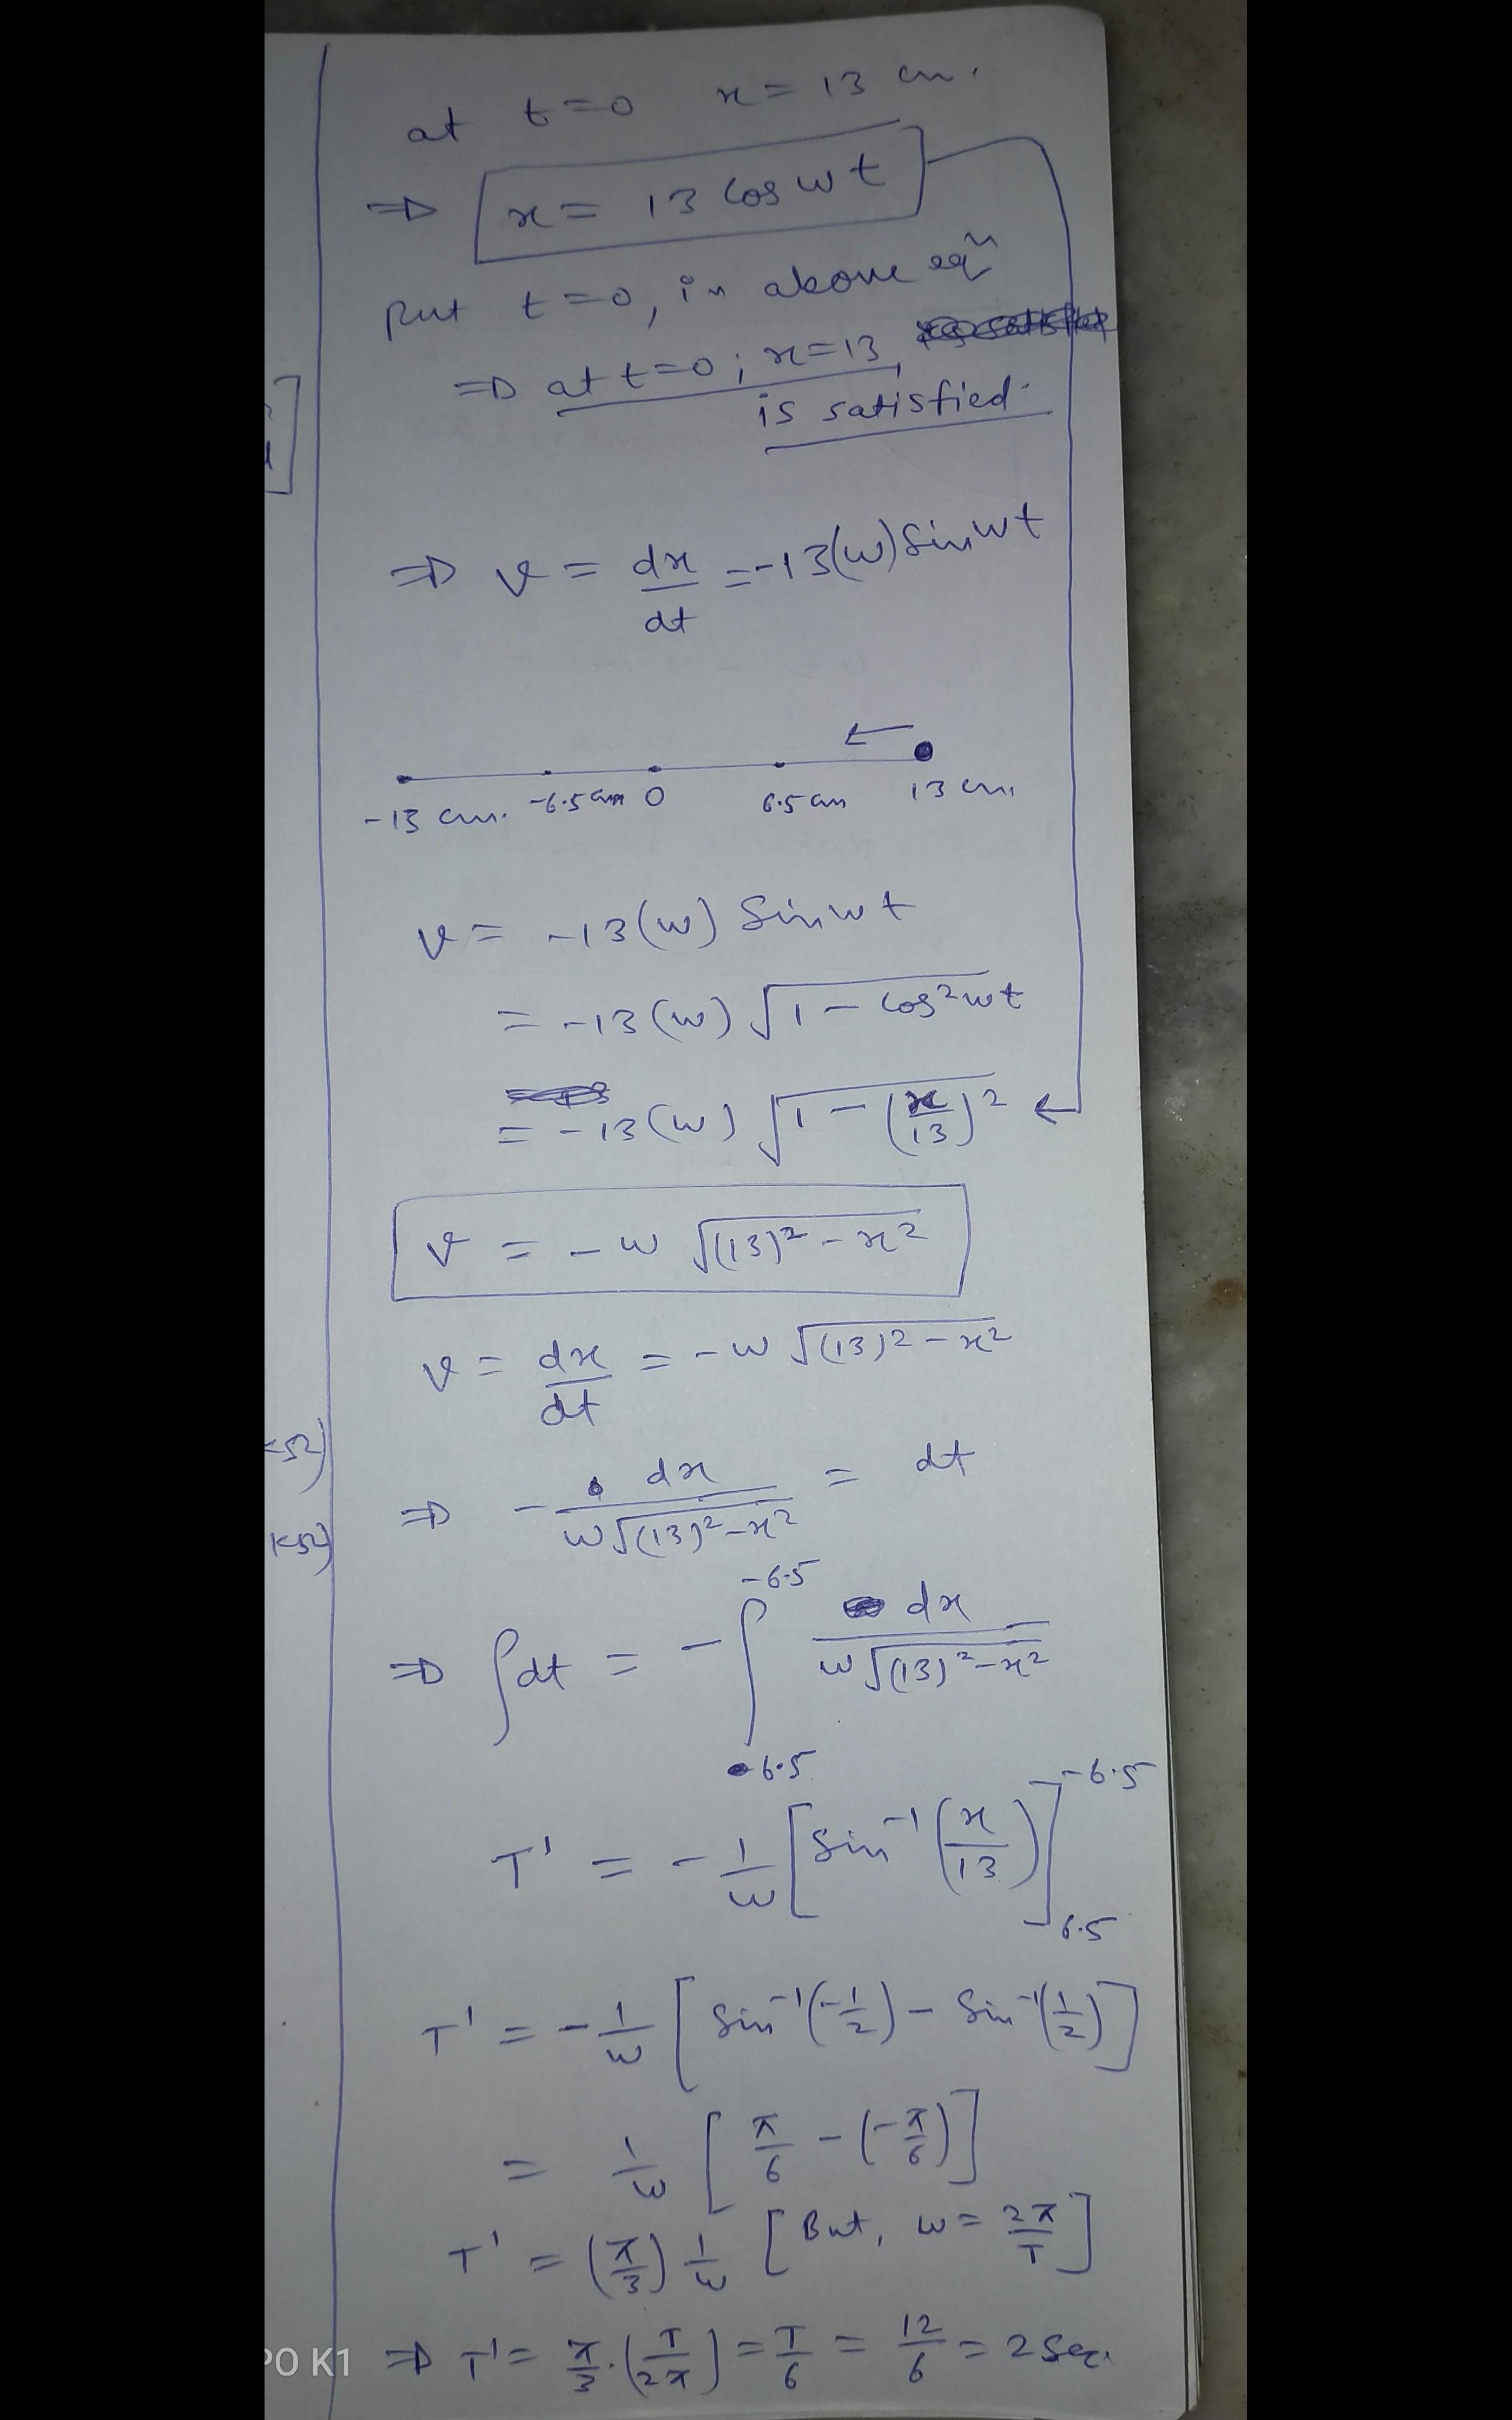 at t=0 x=13 cm.
⇒ x= 13 Cos wt
Put t=0, in above eqⁿ
⇒ at t=0; x=13,
is satisfied.
⇒ v = dx/dt = -13(w) Sin wt
-13 cm. -6.5 cm 0 6.5 cm 13 cm
v = -13(w) Sin wt
= -13(w) √(1 - Cos²wt)
= -13(w) √(1 - (x/13)²)
v = -w √((13)² - x²)
v = dx/dt = -w √((13)² - x²)
⇒ - dx/(w√((13)² - x²)) = dt
⇒ ∫dt = - ∫_{6.5}^{-6.5} dx/(w√((13)² - x²))
T' = - 1/w [Sin⁻¹(x/13)]_{6.5}^{-6.5}
T' = - 1/w [Sin⁻¹(-1/2) - Sin⁻¹(1/2)]
= 1/w [π/6 - (-π/6)]
T' = (π/3) 1/w [But, w = 2π/T]
⇒ T' = π/3 . (T/2π) = T/6 = 12/6 = 2 Sec.
PO K1